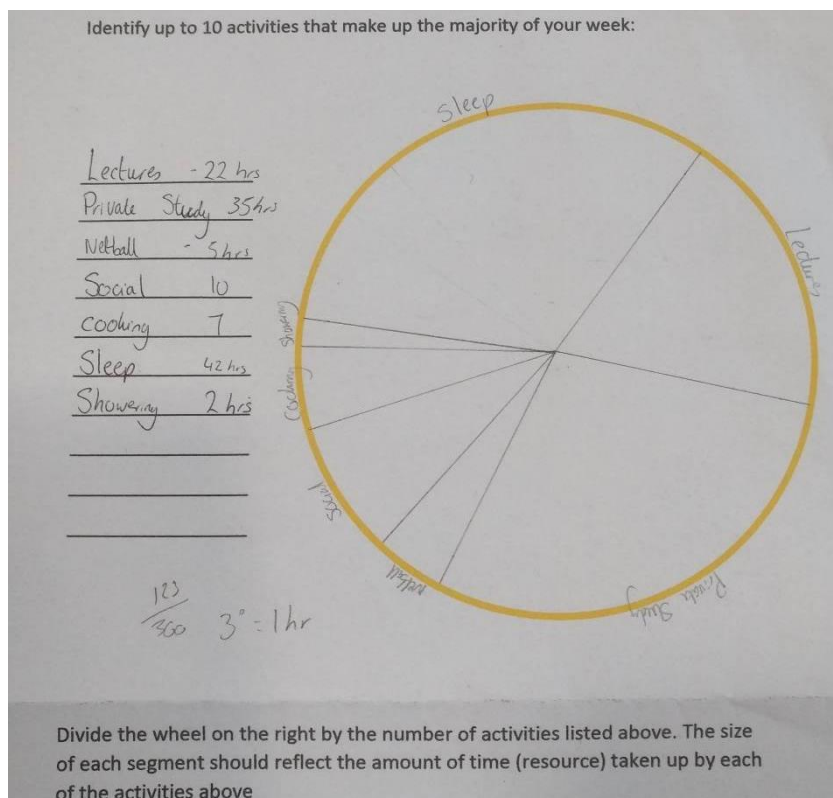 Identify up to 10 activities that make up the majority of your week:
Sleep
Lectures - 22 hrs
Private Study 35hrs
Netball - 5hrs
Social 10
Cooking 7
Sleep 42 hrs
Showering 2 hrs
Lectures
Showering
Cooking
Social
Netball
Private Study
123
/360 3° = 1hr
Divide the wheel on the right by the number of activities listed above. The size
of each segment should reflect the amount of time (resource) taken up by each
of the activities above